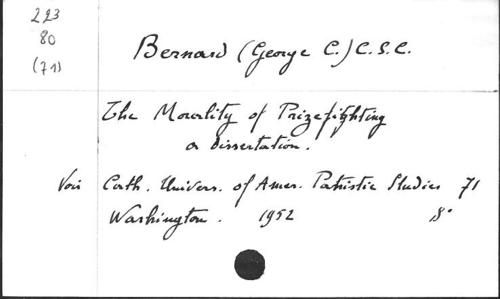 223
80
(71)
Bernard (George C.) C.S.C.
The Morality of Prizefighting
a dissertation.
Vois Cath. Univers. of Amer. Patristic Studies 71
Washington. 1952 8°